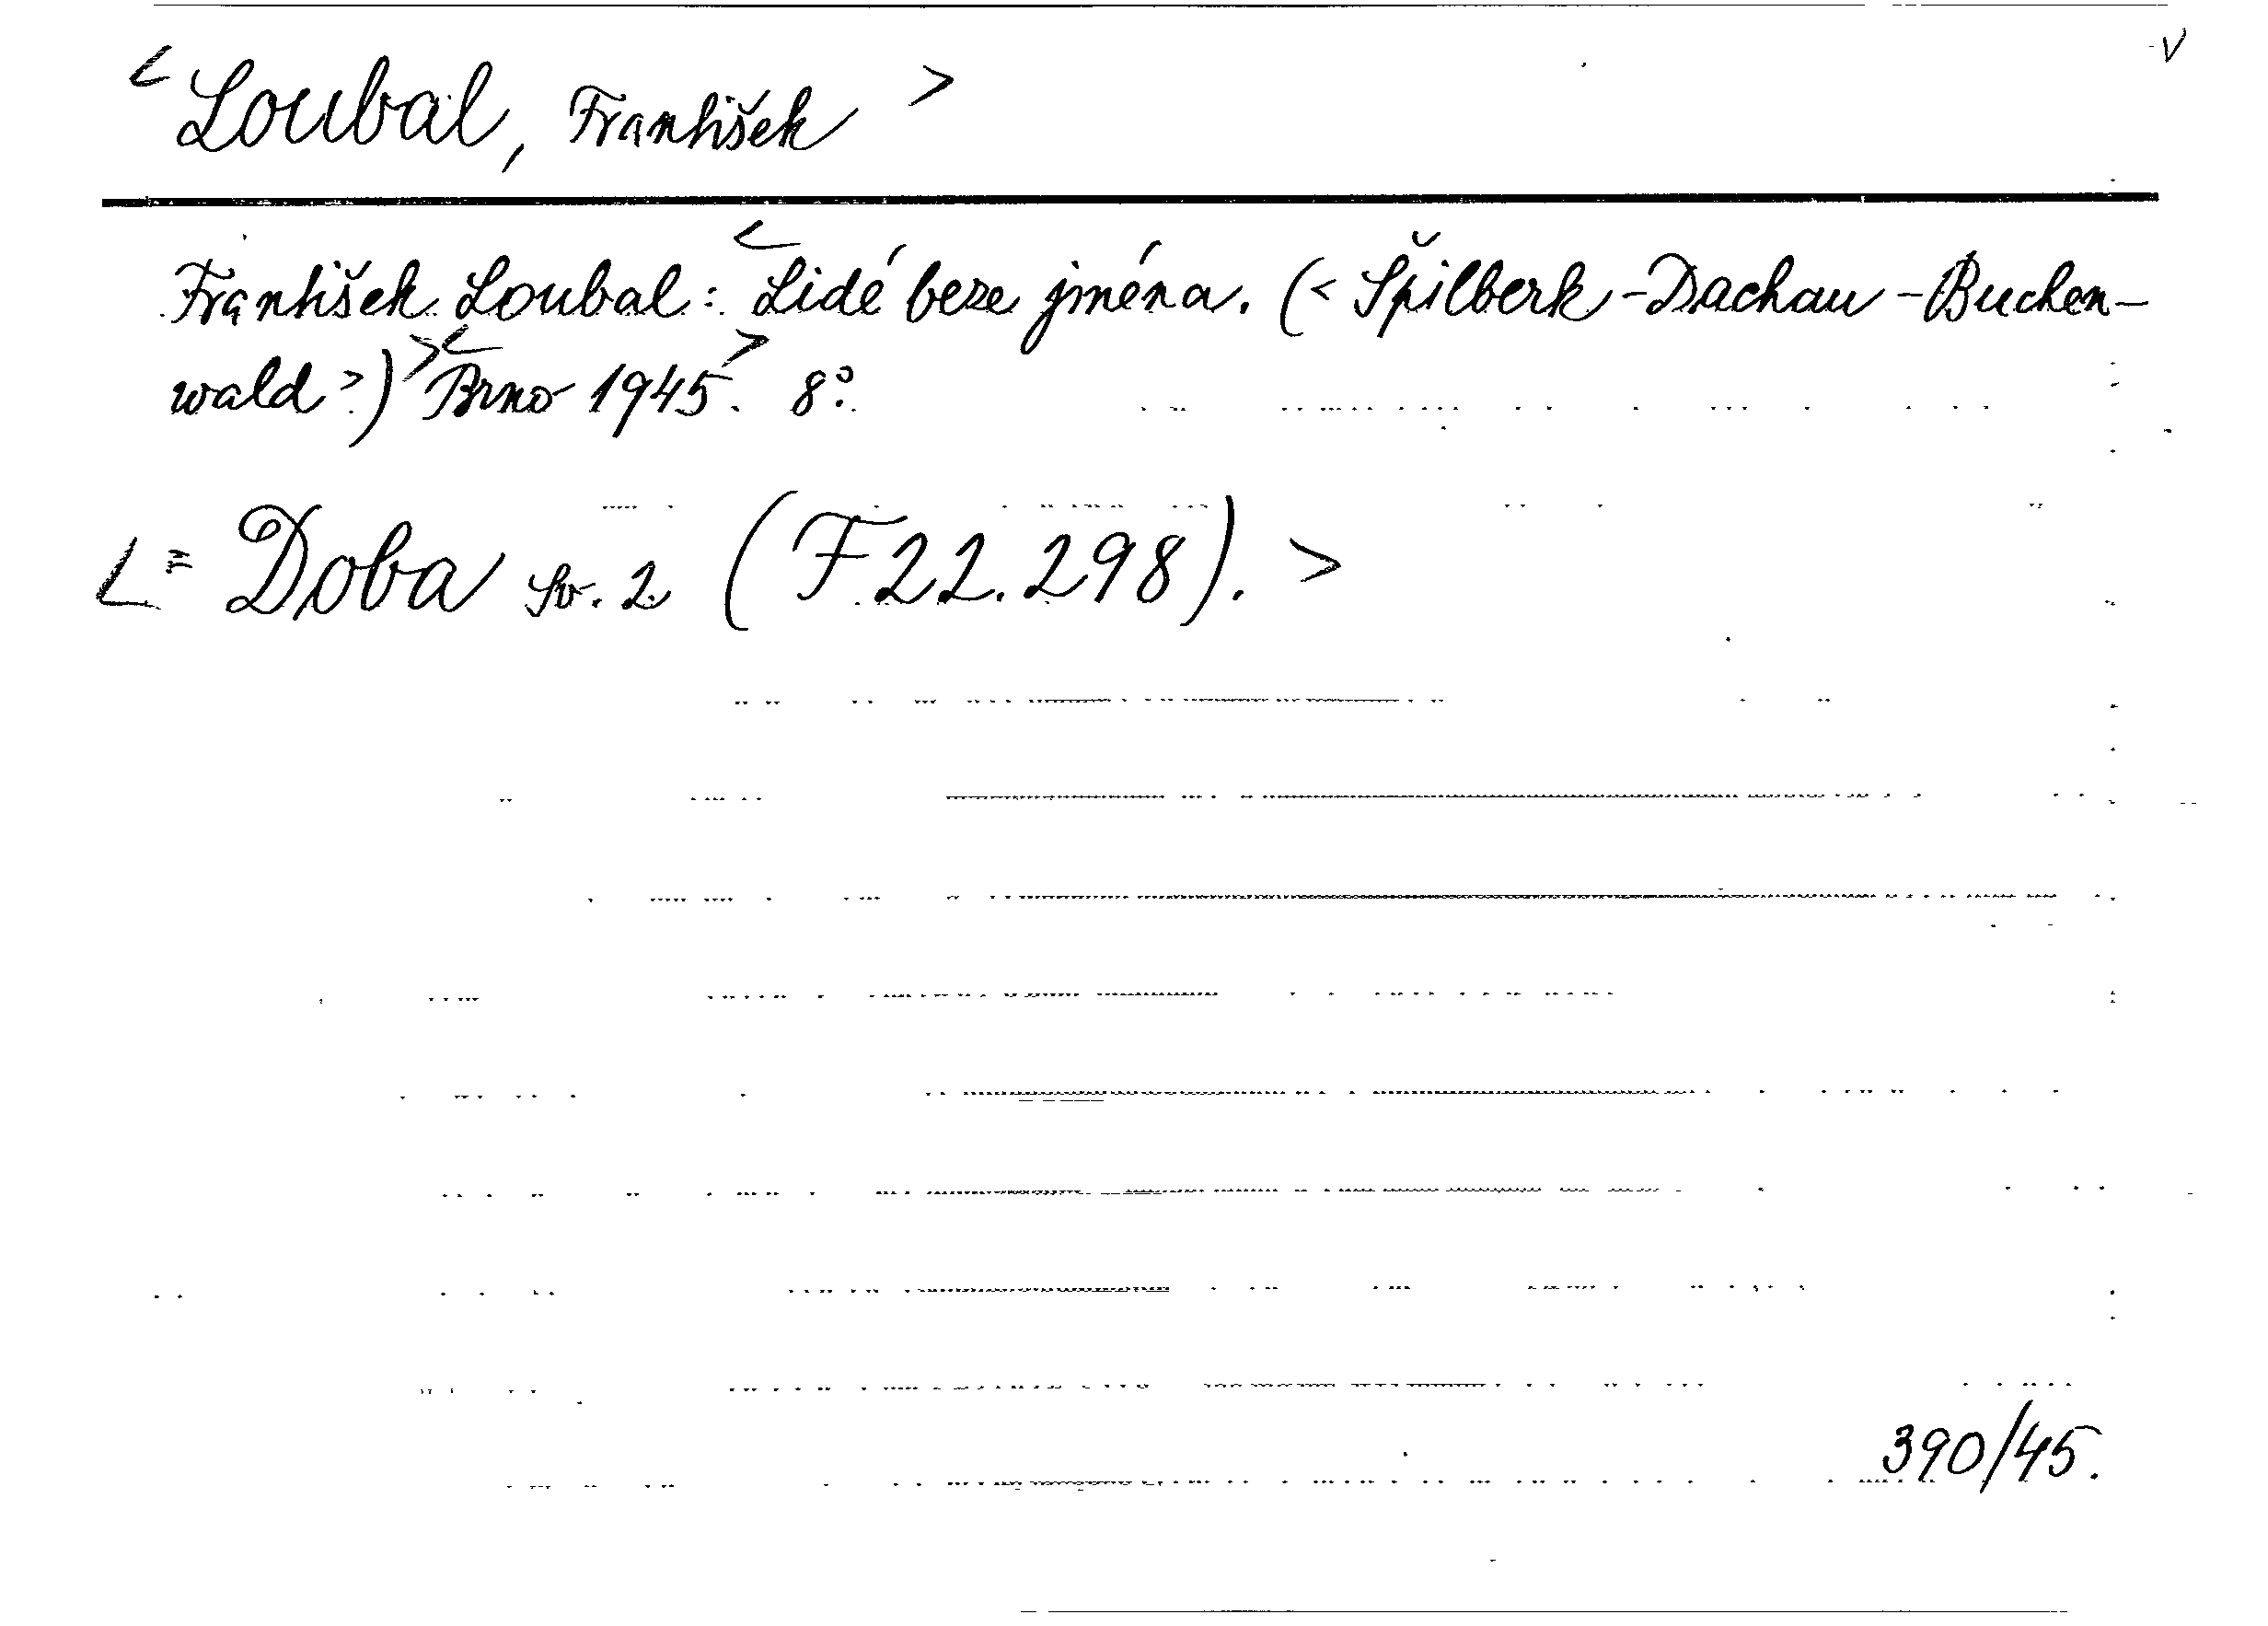 < Loubal, František >
v
František Loubal: < Lidé beze jména. (< Špilberk - Dachau - Buchen-
wald >) > < Brno 1945. > 8°.
< = Doba Sv. 2. (F 22.298). >
390/45.